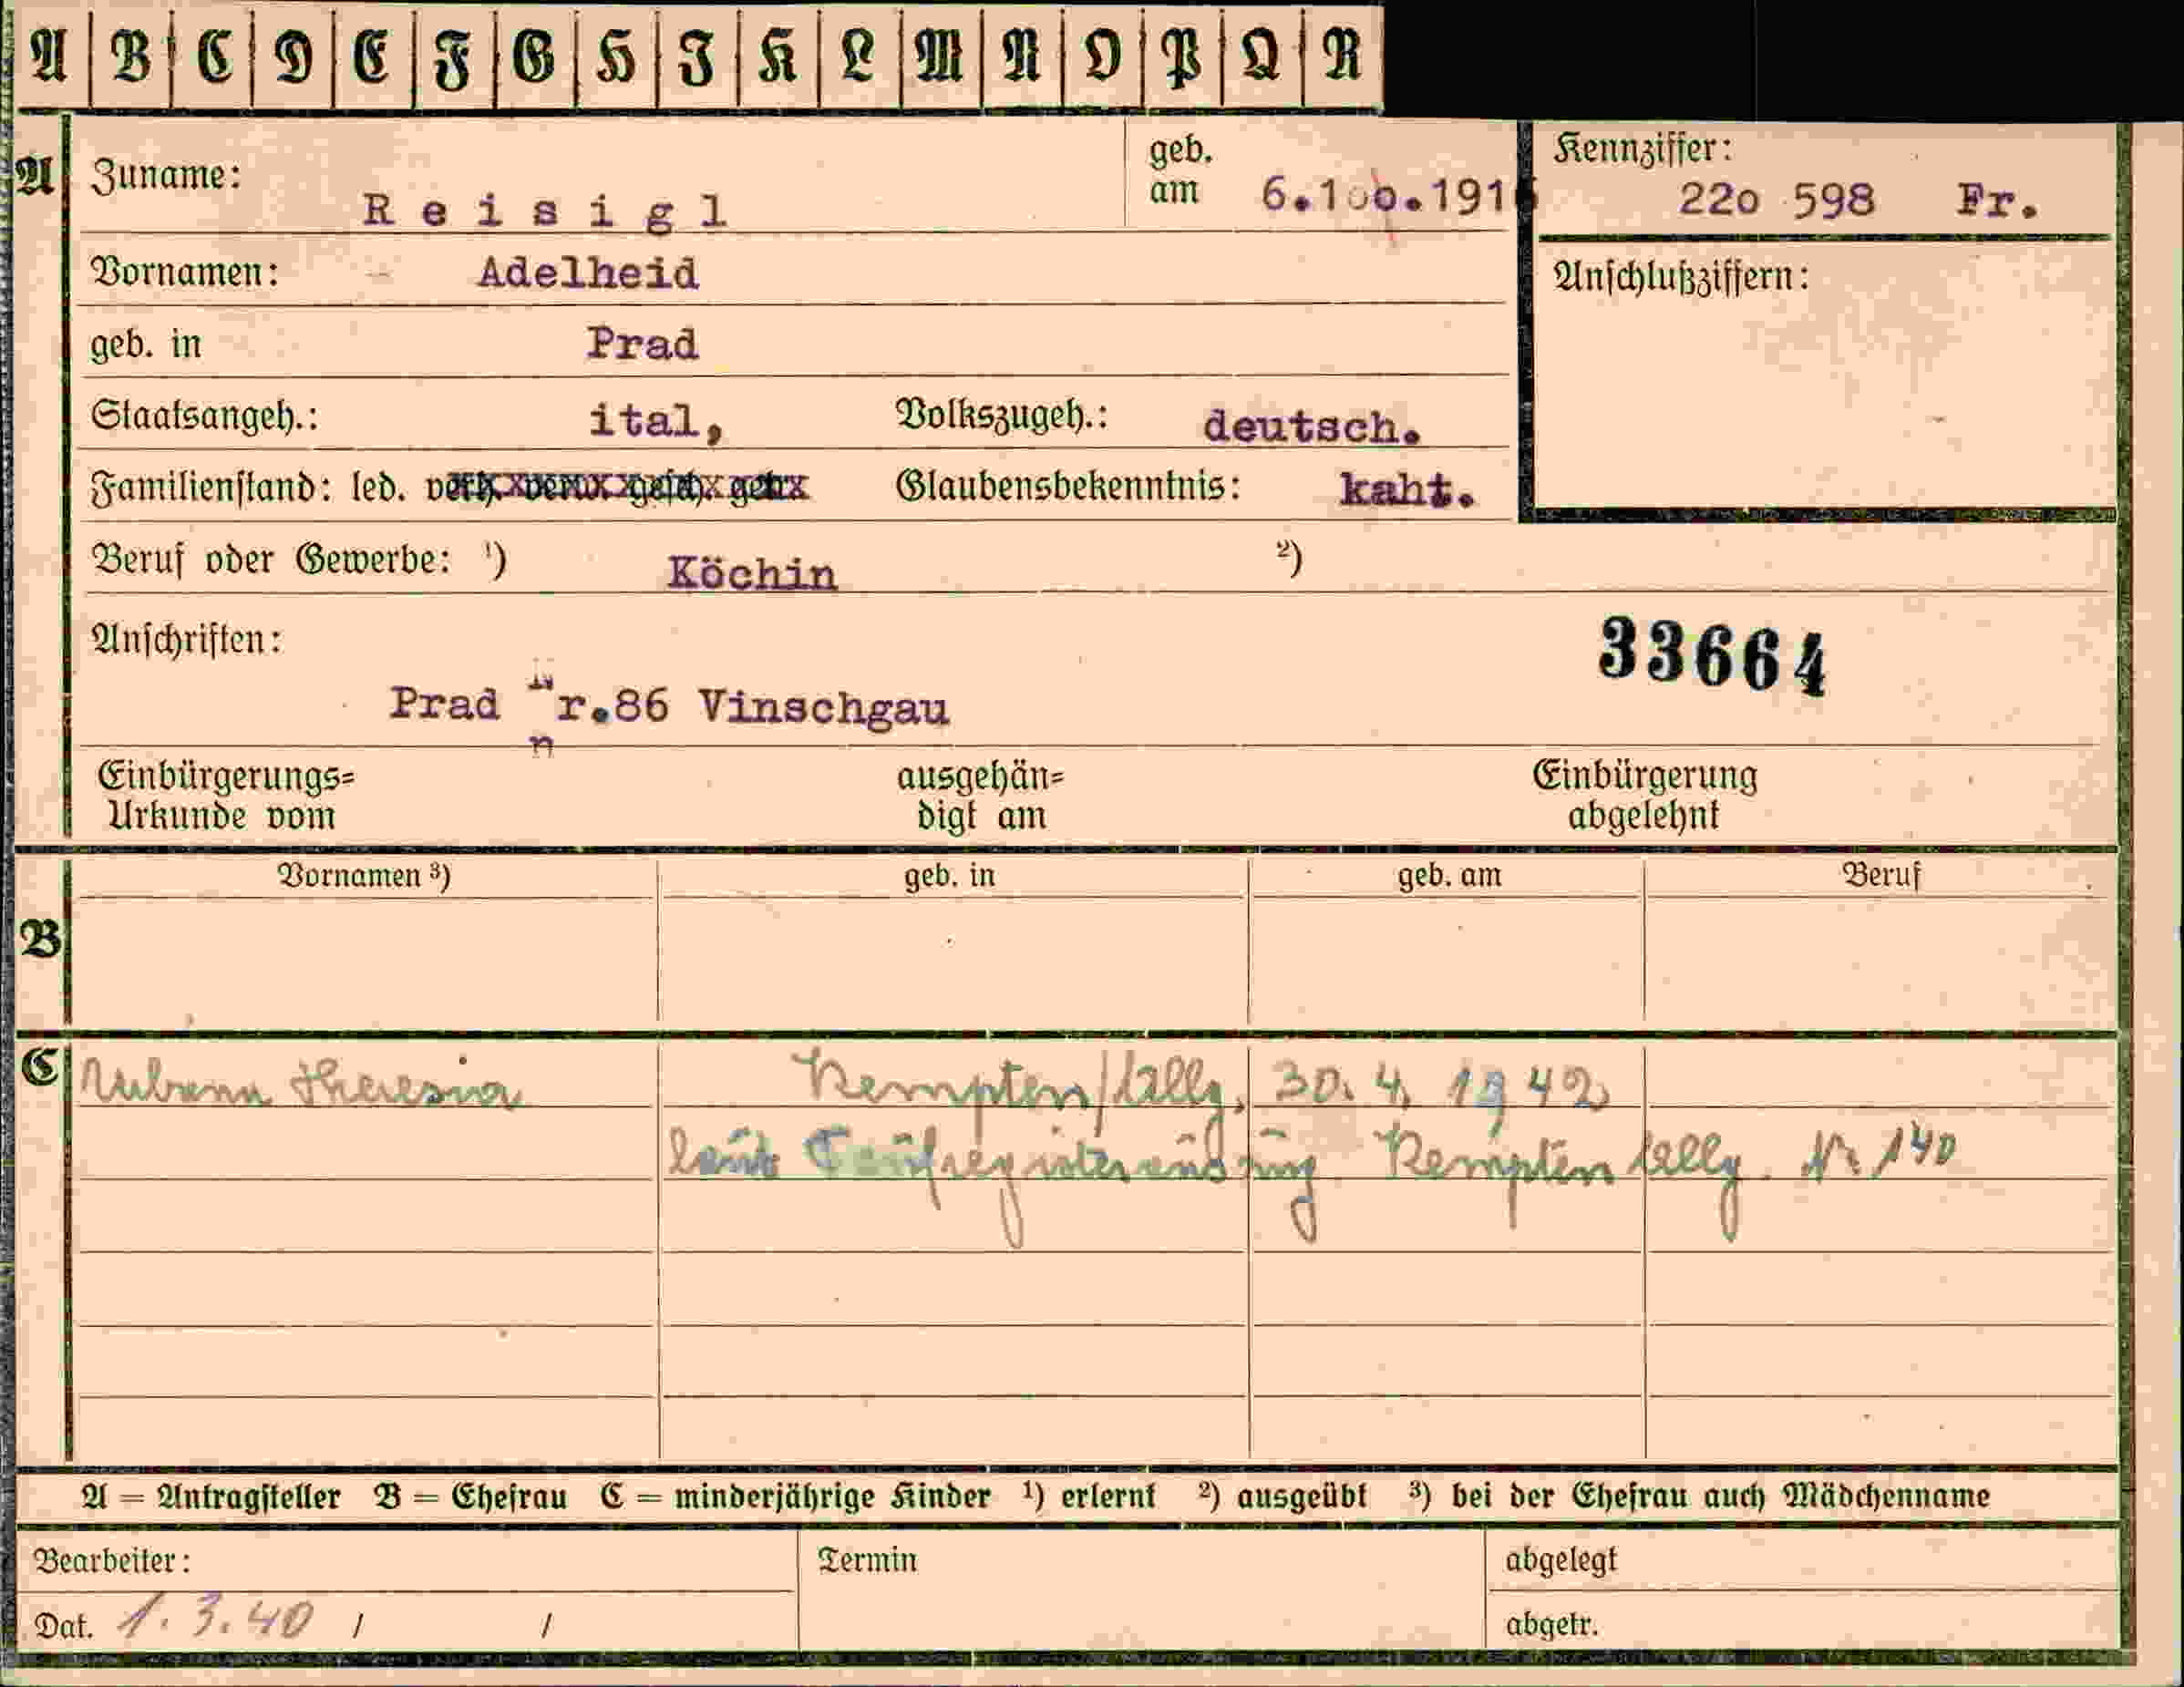 A B C D E F G H I K L M N O P Q R
A
Zuname: Reisigl
geb. am 6.1
Kennziffer: 22o 598 Fr.
Vornamen: Adelheid
Anschlußziffern:
geb. in Prad
Staatsangeh.: ital, Volkszugeh.: deutsch.
Familienstand: led. verh. verw. gesch. getr. Glaubensbekenntnis: kaht.
Beruf oder Gewerbe: ¹) Köchin ²)
Anschriften: 33664
Prad Nr.86 Vinschgau
n
Einbürgerungs= Urkunde vom
ausgehän= digt am
Einbürgerung abgelehnt
Vornamen ³) geb. in geb. am Beruf
B
C Theresia Kempten/Allg. 30. 4. 1942
laut Kempten Allg. Nr 140
A = Antragsteller B = Ehefrau C = minderjährige Kinder ¹) erlernt ²) ausgeübt ³) bei der Ehefrau auch Mädchenname
Bearbeiter: Termin abgelegt
Dat. 1.3.40 / / abgetr.